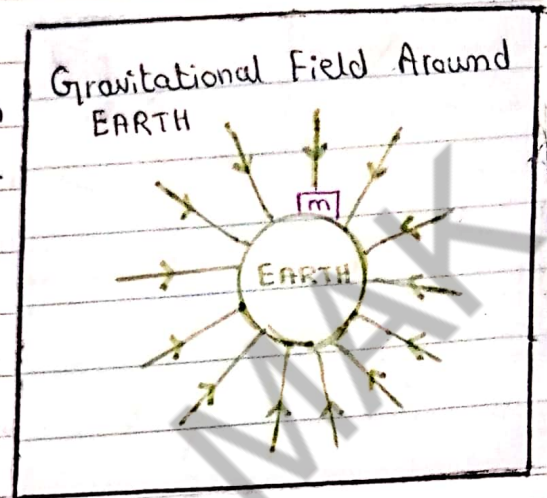 Gravitational Field Around
EARTH
m
EARTH
MAK